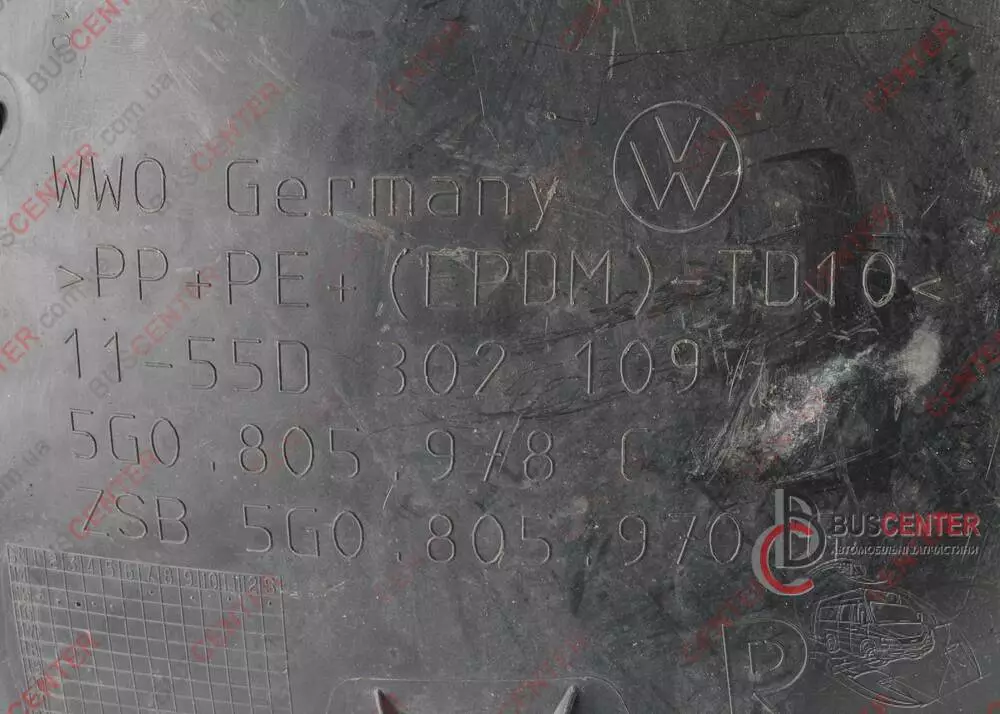 WWO Germany
>PP+PE+(EPDM)-TD10<
11-55D 302 109
5G0.805.978 C
ZSB 5G0.805.970
BUSCENTER
АВТОМОБІЛЬНІ ЗАПЧАСТИНИ
R